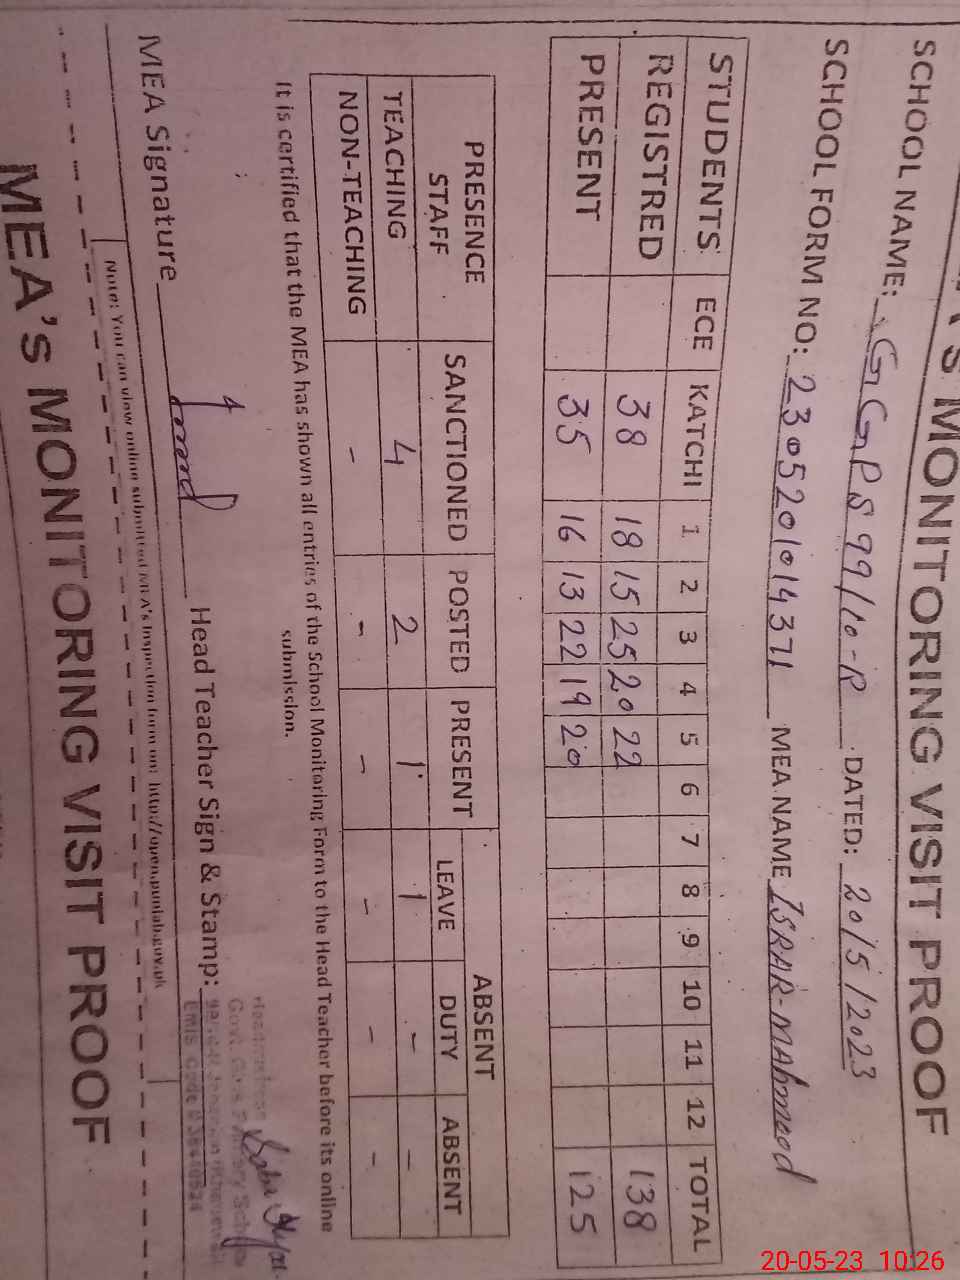 MONITORING VISIT PROOF
SCHOOL NAME: GGPS 99/10-R DATED: 20/5/2023
SCHOOL FORM NO: 2305201014371 MEA NAME ISRAR-MAhmood
STUDENTS ECE KATCHI 1 2 3 4 5 6 7 8 9 10 11 12 TOTAL
REGISTRED 38 18 15 25 20 22 138
PRESENT 35 16 13 22 19 20 125
PRESENCE STAFF SANCTIONED POSTED PRESENT ABSENT
LEAVE DUTY ABSENT
TEACHING 4 2 1 1 - -
NON-TEACHING - - - - - -
It is certified that the MEA has shown all entries of the School Monitoring Form to the Head Teacher before its online
submission.
MEA Signature Head Teacher Sign & Stamp:
Headmistress
Govt. Girls Primary School
Note: You can view online submitted MEA's Inspection form on: http://open.punjab.gov.pk
MEA's MONITORING VISIT PROOF
20-05-23 10:26